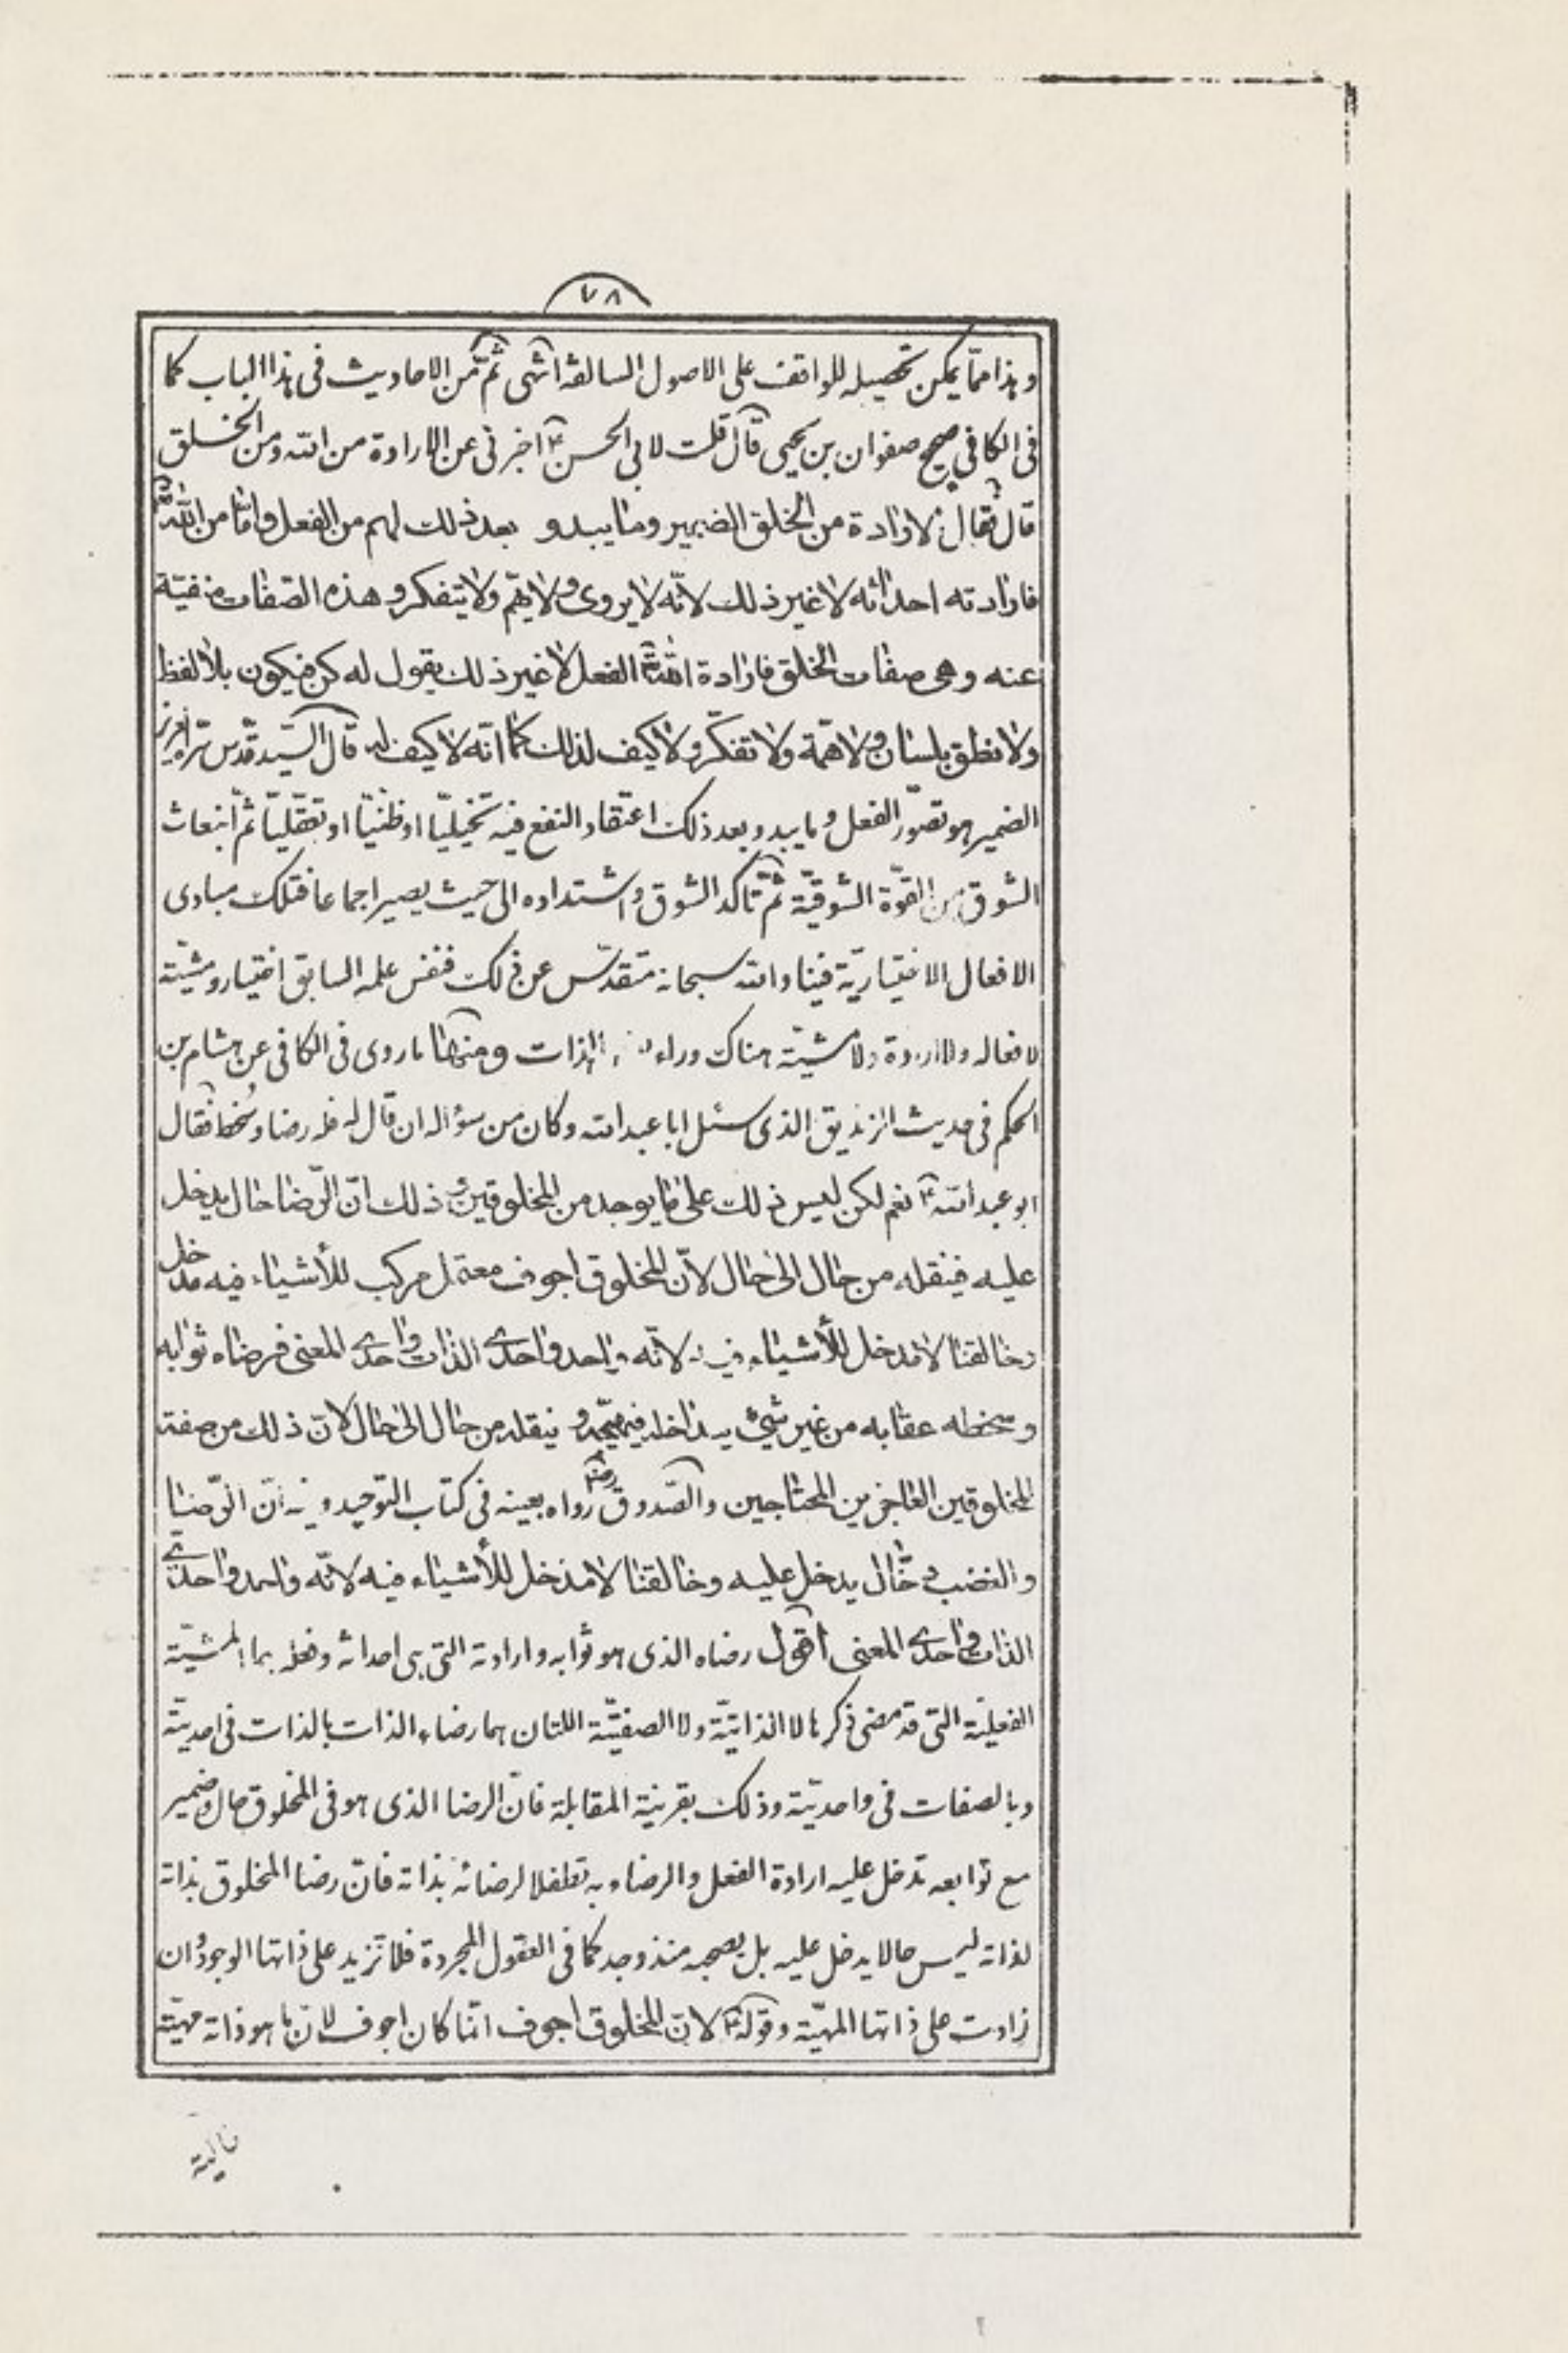 ٧٨
وهذا مما يمكن تحصيله للواقف على الاصول السالفة انتهى ثم من الاحاديث فى هذا الباب كما
فى الكافى صحيح صفوان بن يحيى قال قلت لابى الحسن ع اخبرنى عن الارادة من الله ومن الخلق
قال فقال الارادة من الخلق الضمير وما يبدو بعد ذلك لهم من الفعل واما من الله
فارادته احداثه لا غير ذلك لانّه لا يروى ولا يهمّ ولا يتفكر وهذه الصفات منفية
عنه وهى صفات الخلق فارادة الله الفعل لا غير ذلك يقول له كن فيكون بلا لفظ
ولا نطق بلسان ولا همّة ولا تفكّر ولا كيف لذلك كما انّه لا كيف له قال السيّد قدّس سرّه
الضمير هو تصوّر الفعل وما يبدو بعد ذلك اعتقاد النفع فيه تخيليّا او ظنيّا او تعقليّا ثمّ انبعاث
الشوق من القوّة الشوقيّة ثمّ تأكد الشوق واشتداده الى حيث يصير اجماعا فتلك مبادى
الافعال الاختياريّة فينا والله سبحانه متقدّس عن ذلك فنفس علمه السابق اختيار ومشيّة
لافعاله ولا ارادة ولا مشيّة هناك وراء الذات ومنها ما روى فى الكافى عن هشام بن
الحكم فى حديث الزنديق الذى سئل ابا عبد الله وكان من سؤاله ان قال له فله رضا وسخط فقال
ابو عبد الله ع نعم لكن ليس ذلك على ما يوجد من المخلوقين وذلك انّ الرّضا حال يدخل
عليه فينقله من حال الى حال لانّ المخلوق اجوف معتمل مركب للأشياء فيه مدخل
وخالقنا لا مدخل للأشياء فيه لانّه واحد واحدى الذات واحدى المعنى فرضاه ثوابه
وسخطه عقابه من غير شىء يداخله فيهيّجه و ينقله من حال الى حال لانّ ذلك من صفة
المخلوقين العاجزين المحتاجين والصّدوق رض رواه بعينه فى كتاب التوحيد وفيه انّ الرّضا
والغضب دخّال يدخل عليه وخالقنا لا مدخل للأشياء فيه لانّه واحد واحدى
الذات واحدى المعنى اقول رضاه الذى هو ثوابه وارادته التى هى احداثه وفعله هما المشيّة
الفعليّة التى قد مضى ذكرها لا الذاتيّة ولا الصفتيّة اللتان هما رضاء الذات بالذات فى احديته
وبالصفات فى واحديّته وذلك بقرينة المقابلة فانّ الرضا الذى هو فى المخلوق حال وضمير
مع توابعه تدخل عليه ارادة الفعل والرضاء به تعلقا لا لرضائه بذاته فانّ رضا المخلوق بذاته
لذاته ليس حالا يدخل عليه بل يصحبه منذ وجد كما فى العقول المجردة فلا تزيد على ذاتها الوجود وان
زادت على ذاتها المهيّة وقوله ع لانّ المخلوق اجوف انّما كان اجوف لانّ ما هو ذاته مهيّته